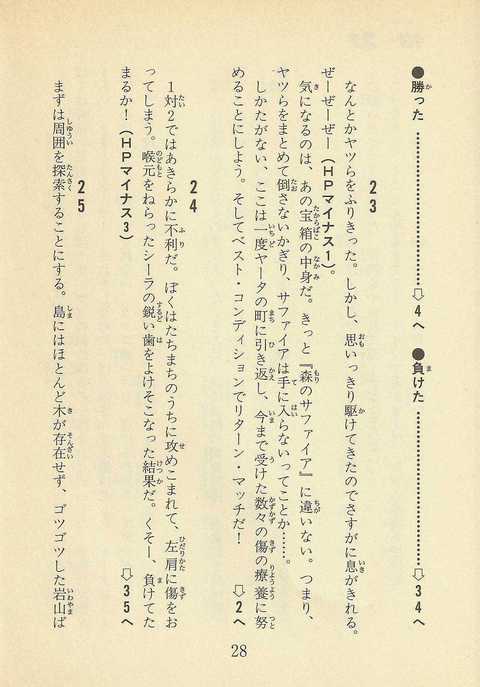 ●勝った…………………………⇩4へ　●負けた…………………………⇩34へ
23
なんとかヤツらをふりきった。しかし、思いっきり駆けてきたのでさすがに息がきれる。
ぜーぜーぜー（ＨＰマイナス1）。
気になるのは、あの宝箱の中身だ。きっと『森のサファイア』に違いない。つまり、
ヤツらをまとめて倒さないかぎり、サファイアは手に入らないってことか……。
しかたがない、ここは一度ヤータの町に引き返し、今まで受けた数々の傷の療養に努
めることにしよう。そしてベスト・コンディションでリターン・マッチだ！　⇩2へ
24
1対2ではあきらかに不利だ。ぼくはたちまちのうちに攻めこまれて、左肩に傷をお
ってしまう。喉元をねらったシーラの鋭い歯をよけそこなった結果だ。くそー、負けてた
まるか！（ＨＰマイナス3）　⇩35へ
25
まずは周囲を探索することにする。島にはほとんど木が存在せず、ゴツゴツした岩山ば
28